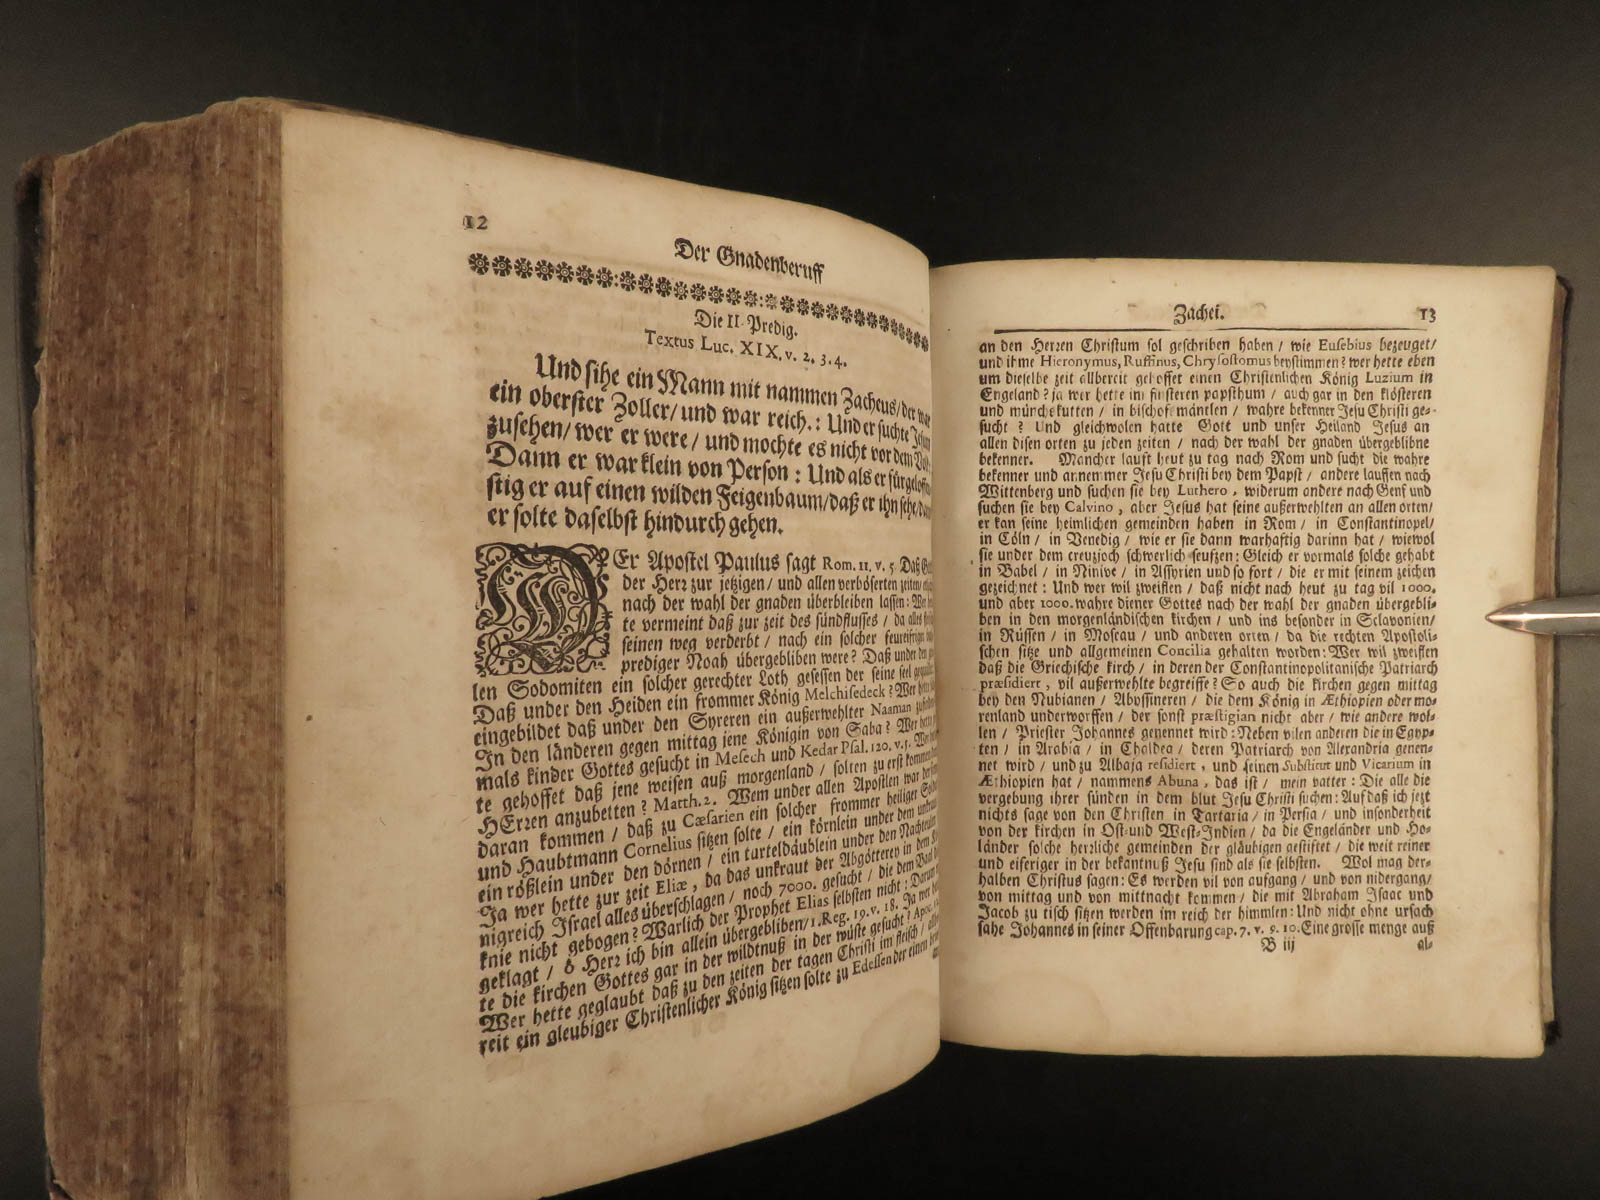 12
Der Gnadenberuff
Die II. Predig.
Textus Luc. XIX. v. 2. 3. 4.
Und sihe ein Mann mit nammen Zacheus/ der war
ein oberster Zoller/ und war reich.: Und er suchte Jesum
zusehen/ wer er were/ und mochte es nicht vor dem
Dann er war klein von Person: Und als er fürgeloffen
stig er auf einen wilden Feigenbaum/ daß er ihn sehe/
er solte daselbst hindurch gehen.
DEr Apostel Paulus sagt Rom. 11. v. 5. Daß
der Herr zur jetzigen/ und allen verböserten zeiten/
nach der wahl der gnaden überbleiben lassen: Wer
te vermeint daß zur zeit des sündflusses/ da alles
seinen weg verderbt/ nach ein solcher feureifriger
prediger Noah übergebliben were? Daß under den
len Sodomiten ein solcher gerechter Loth gesessen der seine seel
Daß under den Heiden ein frommer König Melchisedeck? Wer
eingebildet daß under den Syreren ein außerwehlter Naaman
In den länderen gegen mittag jene Königin von Saba? Wer
mals kinder Gottes gesucht in Mesech und Kedar Psal. 120. v. 5. Wer
te gehoffet daß jene weisen auß morgenland/ solten zu erst kommen
HErren anzubetten? Matth. 2. Wem under allen Apostlen war
daran kommen/ daß zu Cæsarien ein solcher frommer heiliger
und Haubtmann Cornelius sitzen solte/ ein körnlein under dem unkraut
ein rößlein under den dörnen/ ein turteldäublein under den Nachteulen
Ja wer hette zur zeit Eliæ, da das unkraut der Abgötterey in dem
nigreich Israel alles überschlagen/ noch 7000. gesucht/ die dem Baal
knie nicht gebogen? Warlich der Prophet Elias selbsten nicht: Darum
geklagt/ ô Herr ich bin allein übergebliben/ 1. Reg. 19. v. 18. Ja wer
te die kirchen Gottes gar in der wildtnuß in der wüste gesucht? Apoc.
Wer hette geglaubt daß zu den zeiten der tagen Christi im fleisch/
reit ein gleubiger Christenlicher König sitzen solte zu Edessen der einen
Zachei.
13
an den Herren Christum sol geschriben haben/ wie Eusebius bezeuget/
und ihme Hieronymus, Ruffinus, Chrysostomus beystimmen? wer hette eben
um dieselbe zeit allbereit gehoffet einen Christenlichen König Luzium in
Engeland? ja wer hette im finsteren papsthum/ auch gar in den klösteren
und münchskutten/ in bischofsmäntlen/ wahre bekenner Jesu Christi ge-
sucht? Und gleichwolen hatte Gott und unser Heiland Jesus an
allen disen orten zu jeden zeiten/ nach der wahl der gnaden übergeblibne
bekenner. Mancher lauft heut zu tag nach Rom und sucht die wahre
bekenner und annemmer Jesu Christi bey dem Papst/ andere lauffen nach
Wittenberg und suchen sie bey Luthero, widerum andere nach Genf und
suchen sie bey Calvino, aber Jesus hat seine außerwehlten an allen orten/
er kan seine heimlichen gemeinden haben in Rom/ in Constantinopel/
in Cöln/ in Venedig/ wie er sie dann warhaftig darinn hat/ wiewol
sie under dem creuzjoch schwerlich seufzen: Gleich er vormals solche gehabt
in Babel/ in Ninive/ in Assyrien und so fort/ die er mit seinem zeichen
gezeichnet: Und wer wil zweiflen/ daß nicht nach heut zu tag vil 1000.
und aber 1000. wahre diener Gottes nach der wahl der gnaden übergebli-
ben in den morgenländischen kirchen/ und ins besonder in Sclavonien/
in Rüssen/ in Moscau/ und anderen orten/ da die rechten Apostoli-
schen sitze und allgemeinen Concilia gehalten worden: Wer wil zweiflen
daß die Griechische kirch/ in deren der Constantinopolitanische Patriarch
præsidiert, vil außerwehlte begreiffe? So auch die kirchen gegen mittag
bey den Nubianen/ Abyssineren/ die dem König in Æthiopien oder mo-
renland underworffen/ der sonst præstigian nicht aber/ wie andere wol-
len/ Priester Johannes genennet wird: Neben vilen anderen die in Egyp-
ten/ in Arabia/ in Chaldea/ deren Patriarch von Alexandria genen-
net wird/ und zu Albaja residiert, und seinen Substitut und Vicarium in
Æthiopien hat/ nammens Abuna, das ist/ mein vatter: Die alle die
vergebung ihrer sünden in dem blut Jesu Christi suchen: Auf daß ich jezt
nichts sage von den Christen in Tartaria/ in Persia/ und insonderheit
von der kirchen in Ost- und West-Indien/ da die Engeländer und Ho-
länder solche herzliche gemeinden der gläubigen gestiftet/ die weit reiner
und eiferiger in der bekantnuß Jesu sind als sie selbsten. Wol mag der-
halben Christus sagen: Es werden vil von aufgang/ und von nidergang/
von mittag und von mittnacht kommen/ die mit Abraham Isaac und
Jacob zu tisch sitzen werden im reich der himmlen: Und nicht ohne ursach
sahe Johannes in seiner Offenbarung cap. 7. v. 9. 10. Eine grosse menge auß
B iij
al-